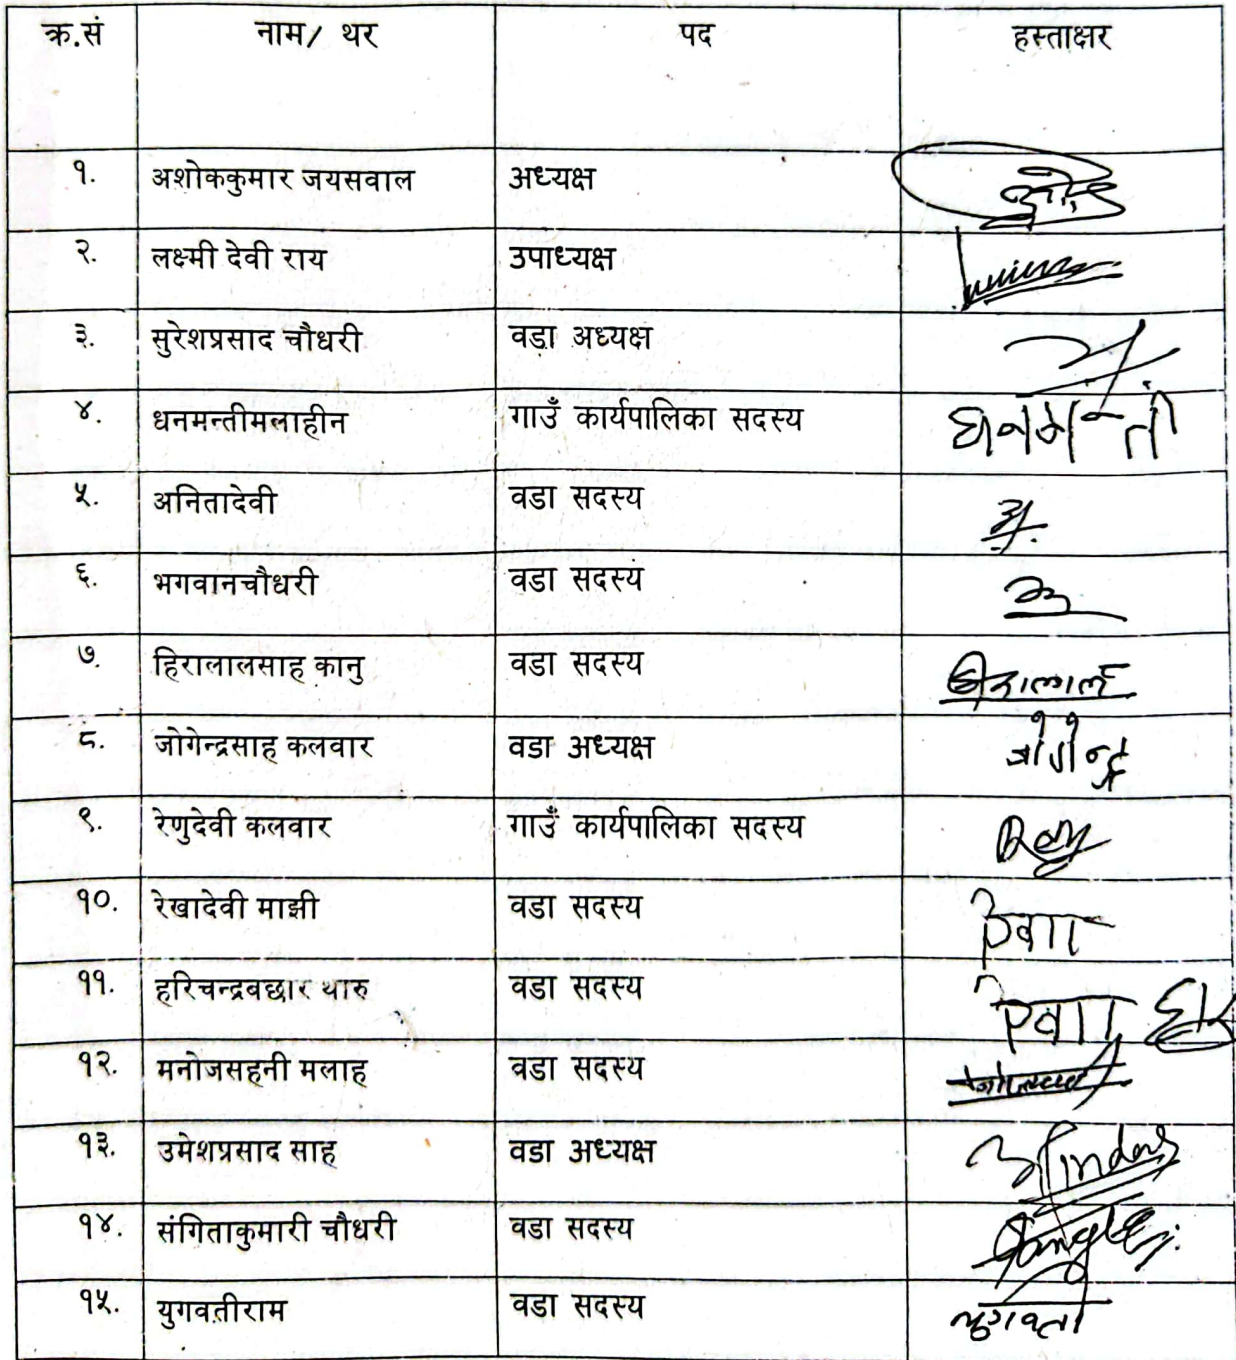 क्र.सं नाम/ थर पद हस्ताक्षर
१. अशोककुमार जयसवाल अध्यक्ष
२. लक्ष्मी देवी राय उपाध्यक्ष
३. सुरेशप्रसाद चौधरी वडा अध्यक्ष
४. धनमन्तीमलाहीन गाउँ कार्यपालिका सदस्य धनमन्ती
५. अनितादेवी वडा सदस्य
६. भगवानचौधरी वडा सदस्य
७. हिरालालसाह कानु वडा सदस्य हिरालाल
८. जोगेन्द्रसाह कलवार वडा अध्यक्ष जोगेन्द्र
९. रेणुदेवी कलवार गाउँ कार्यपालिका सदस्य
१०. रेखादेवी माझी वडा सदस्य रेखा
११. हरिचन्द्रबछार थारु वडा सदस्य रेखा
१२. मनोजसहनी मलाह वडा सदस्य
१३. उमेशप्रसाद साह वडा अध्यक्ष
१४. संगिताकुमारी चौधरी वडा सदस्य
१५. युगवतीराम वडा सदस्य युगवती